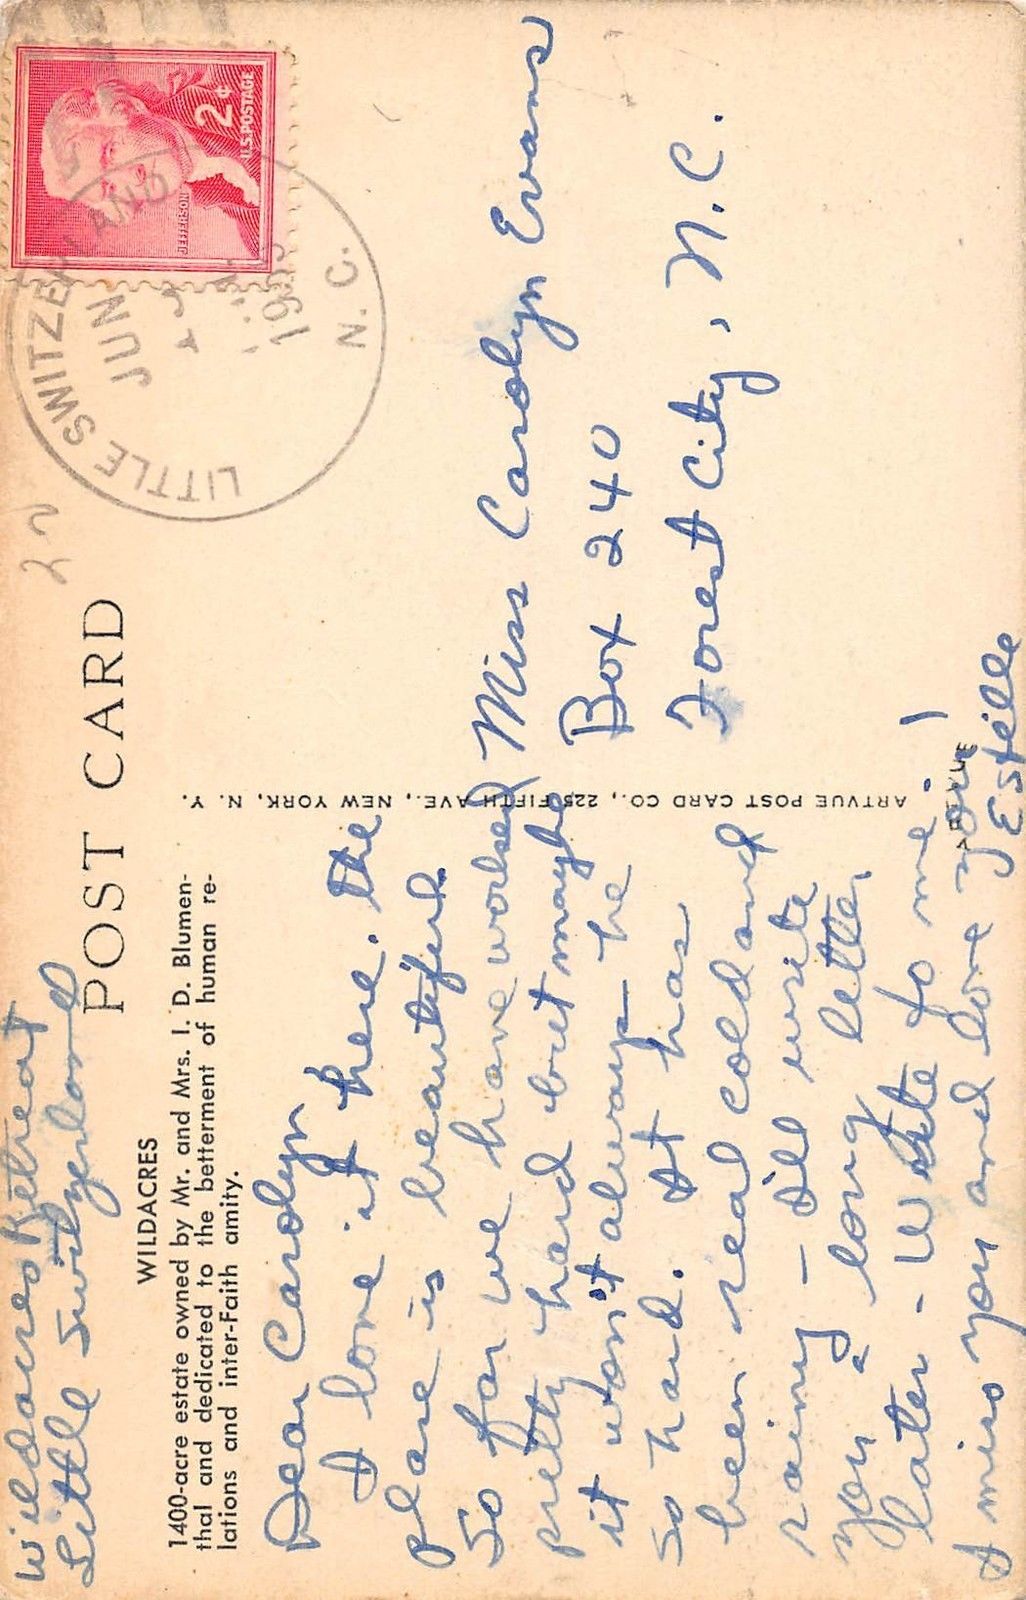 Wildacres Retreat
Little Switzerland
POST CARD
22
WILDACRES
1400-acre estate owned by Mr. and Mrs. I. D. Blumen-
thal and dedicated to the betterment of human re-
lations and inter-Faith amity.
Dear Carolyn
I love it here. The
place is beautiful.
So far we have worked
pretty hard but maybe
it won't always be
so hard. It has
been real cold and
rainy - I'll write
you a long letter
later - Write to me!
I miss you and love you!
Estelle
ARTVUE POST CARD CO., 225 FIFTH AVE., NEW YORK, N. Y.
LITTLE SWITZERLAND
JUN
N. C.
JEFFERSON
2¢
U.S. POSTAGE
Miss Carolyn Evans
Box 240
Forest City, N.C.